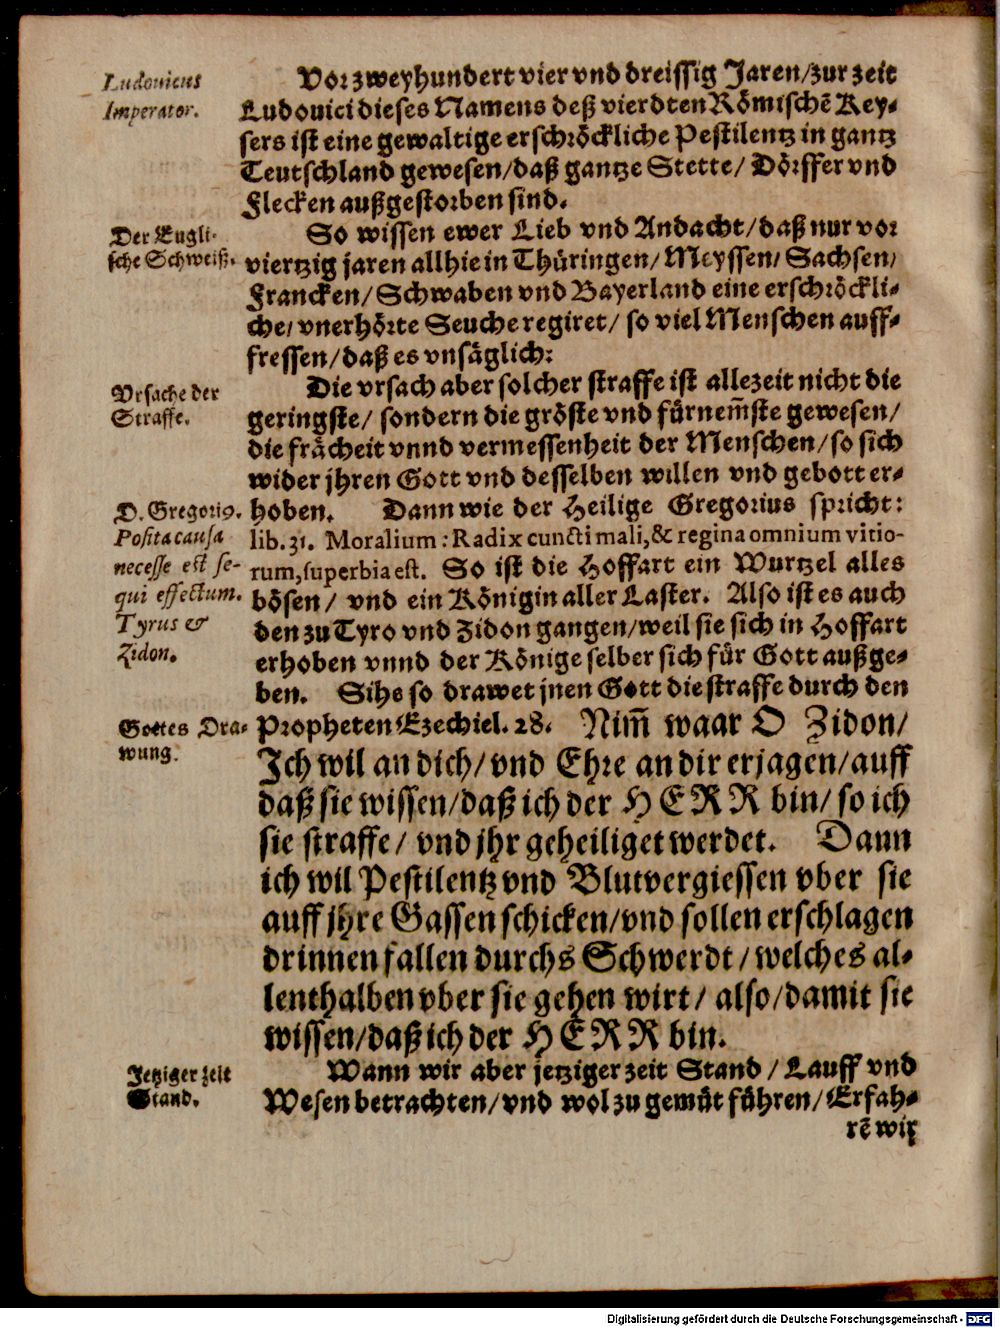 Ludouicus
Imperator.
Vor zweyhundert vier vnd dreissig Jaren/zur zeit
Ludouici dieses Namens deß vierdten Römischẽ Key-
sers ist eine gewaltige erschröckliche Pestilentz in gantz
Teutschland gewesen/daß gantze Stette/ Dörffer vnd
Flecken außgestorben sind.
Der Engli-
sche Schweiß.
So wissen ewer Lieb vnd Andacht/daß nur vor
viertzig jaren allhie in Thüringen/ Meyssen/ Sachsen/
Francken/ Schwaben vnd Bayerland eine erschröckli-
che/ vnerhörte Seuche regiret/ so viel Menschen auff-
fressen/daß es vnsäglich:
Vrsache der
Straffe.
Die vrsach aber solcher straffe ist allezeit nicht die
geringste/ sondern die gröste vnd fürnem̃ste gewesen/
die frächeit vnnd vermessenheit der Menschen/so sich
wider jhren Gott vnd desselben willen vnd gebott er-
D. Gregoriꝰ.
Posita causa
necesse est se-
qui effectum.
Tyrus &
Zidon.
hoben. Dann wie der Heilige Gregorius spricht:
lib. 31. Moralium: Radix cuncti mali, & regina omnium vitio-
rum, superbia est. So ist die Hoffart ein Wurtzel alles
bösen/ vnd ein Königin aller Laster. Also ist es auch
den zu Tyro vnd Zidon gangen/weil sie sich in Hoffart
erhoben vnnd der Könige selber sich für Gott außge-
ben. Sihe so drawet jnen Gott die straffe durch den
Gottes Dra-
wung.
Propheten Ezechiel. 28. Nim̃ waar O Zidon/
Ich wil an dich/vnd Ehre an dir erjagen/auff
daß sie wissen/daß ich der HERR bin/ so ich
sie straffe/ vnd jhr geheiliget werdet. Dann
ich wil Pestilentz vnd Blutvergiessen vber sie
auff jhre Gassen schicken/vnd sollen erschlagen
drinnen fallen durchs Schwerdt/welches al-
lenthalben vber sie gehen wirt/ also/damit sie
wissen/daß ich der HERR bin.
Jetziger zeit
Stand.
Wann wir aber jetziger zeit Stand/ Lauff vnd
Wesen betrachten/vnd wol zu gemüt führen/ Erfah-
rẽ wir
Digitalisierung gefördert durch die Deutsche Forschungsgemeinschaft - DFG